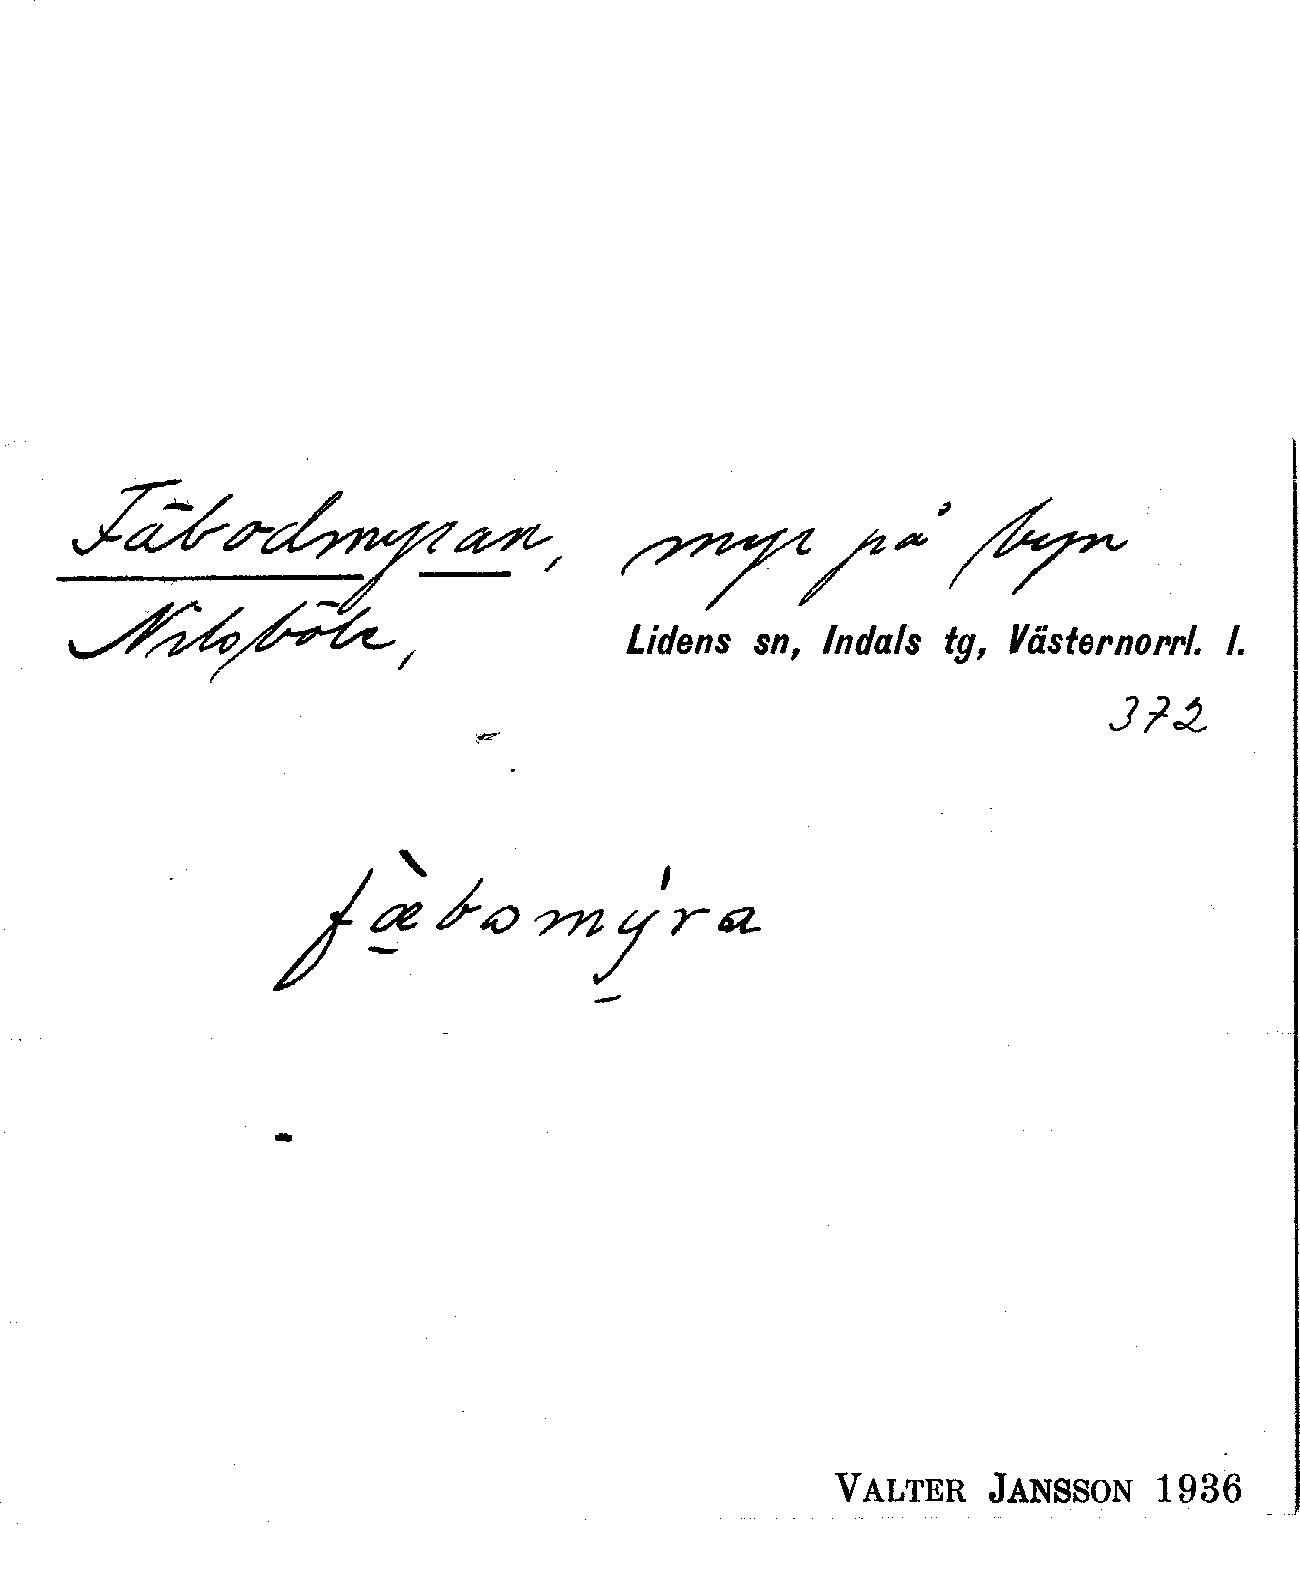 Fäbodmyran, myr på byn
Nilsböle, Lidens sn, Indals tg, Västernorrl. l.
372
fæ̀bomýra
VALTER JANSSON 1936